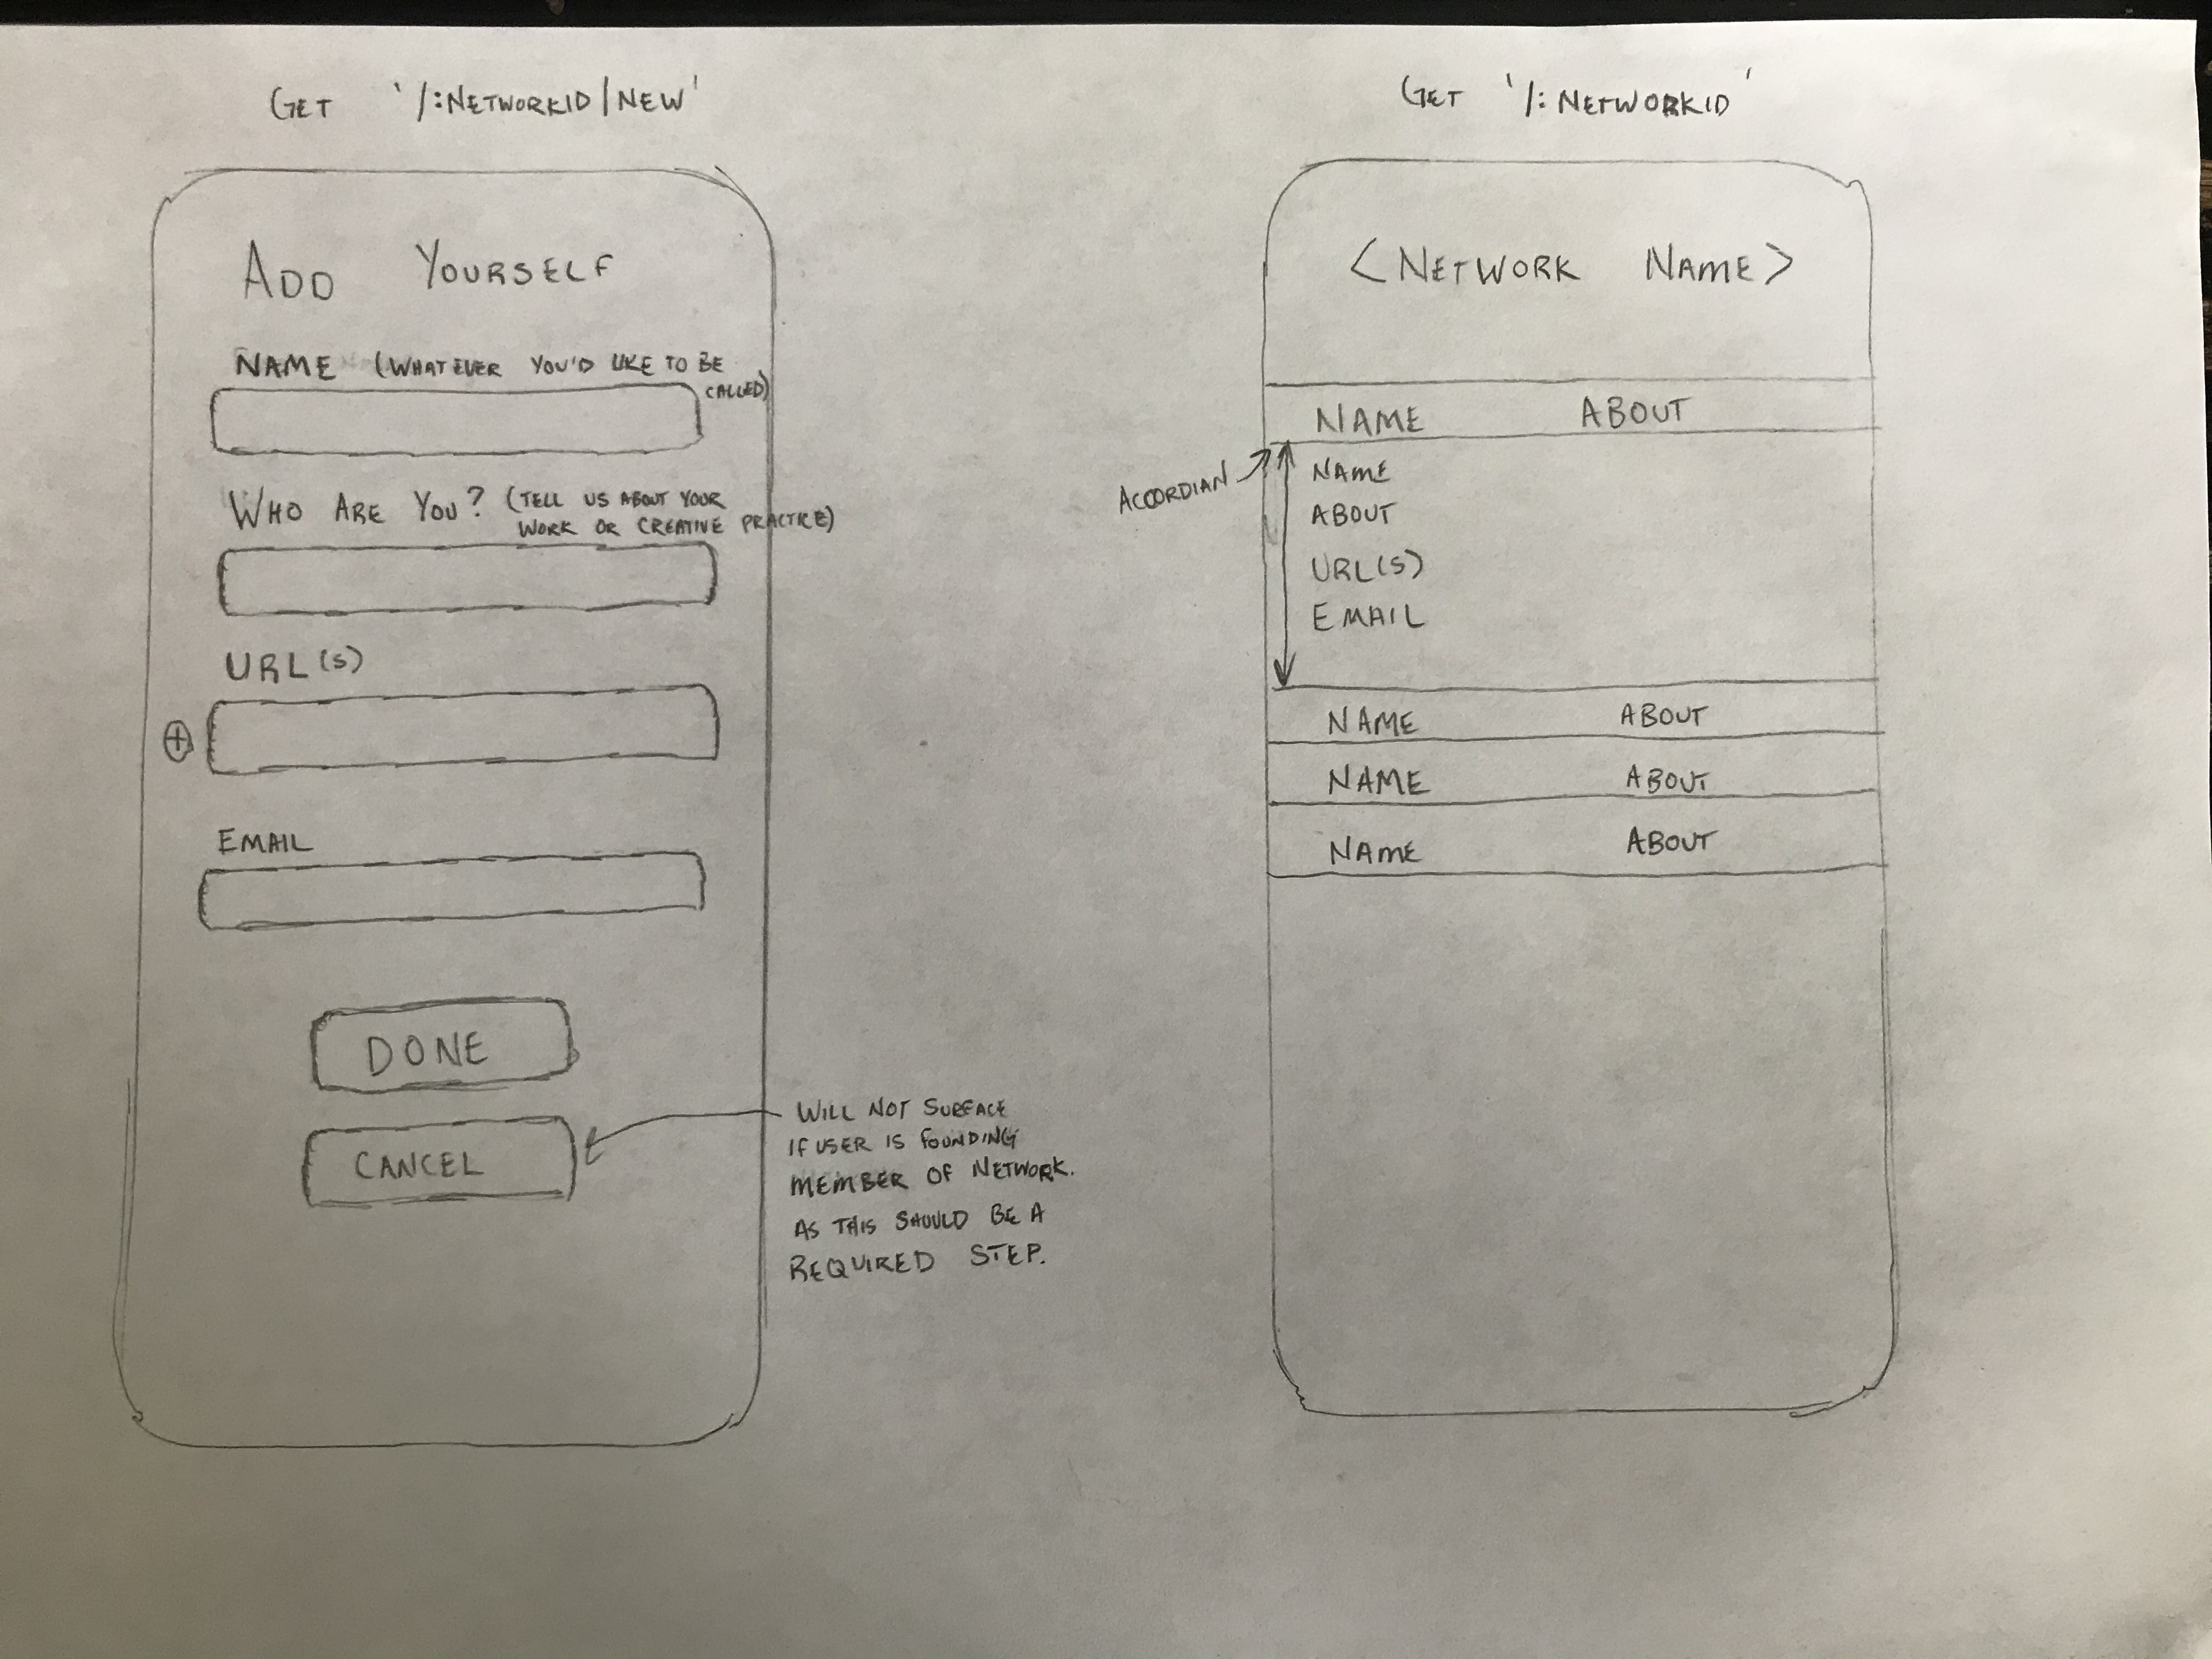 GET '/:NETWORKID/NEW'
ADD YOURSELF
NAME (WHATEVER YOU'D LIKE TO BE
CALLED)
WHO ARE YOU? (TELL US ABOUT YOUR
WORK OR CREATIVE PRACTICE)
URL(S)
EMAIL
DONE
CANCEL
WILL NOT SURFACE
IF USER IS FOUNDING
MEMBER OF NETWORK.
AS THIS SHOULD BE A
REQUIRED STEP.
GET '/:NETWORKID'
<NETWORK NAME>
NAME ABOUT
ACCORDIAN
NAME
ABOUT
URL(S)
EMAIL
NAME ABOUT
NAME ABOUT
NAME ABOUT